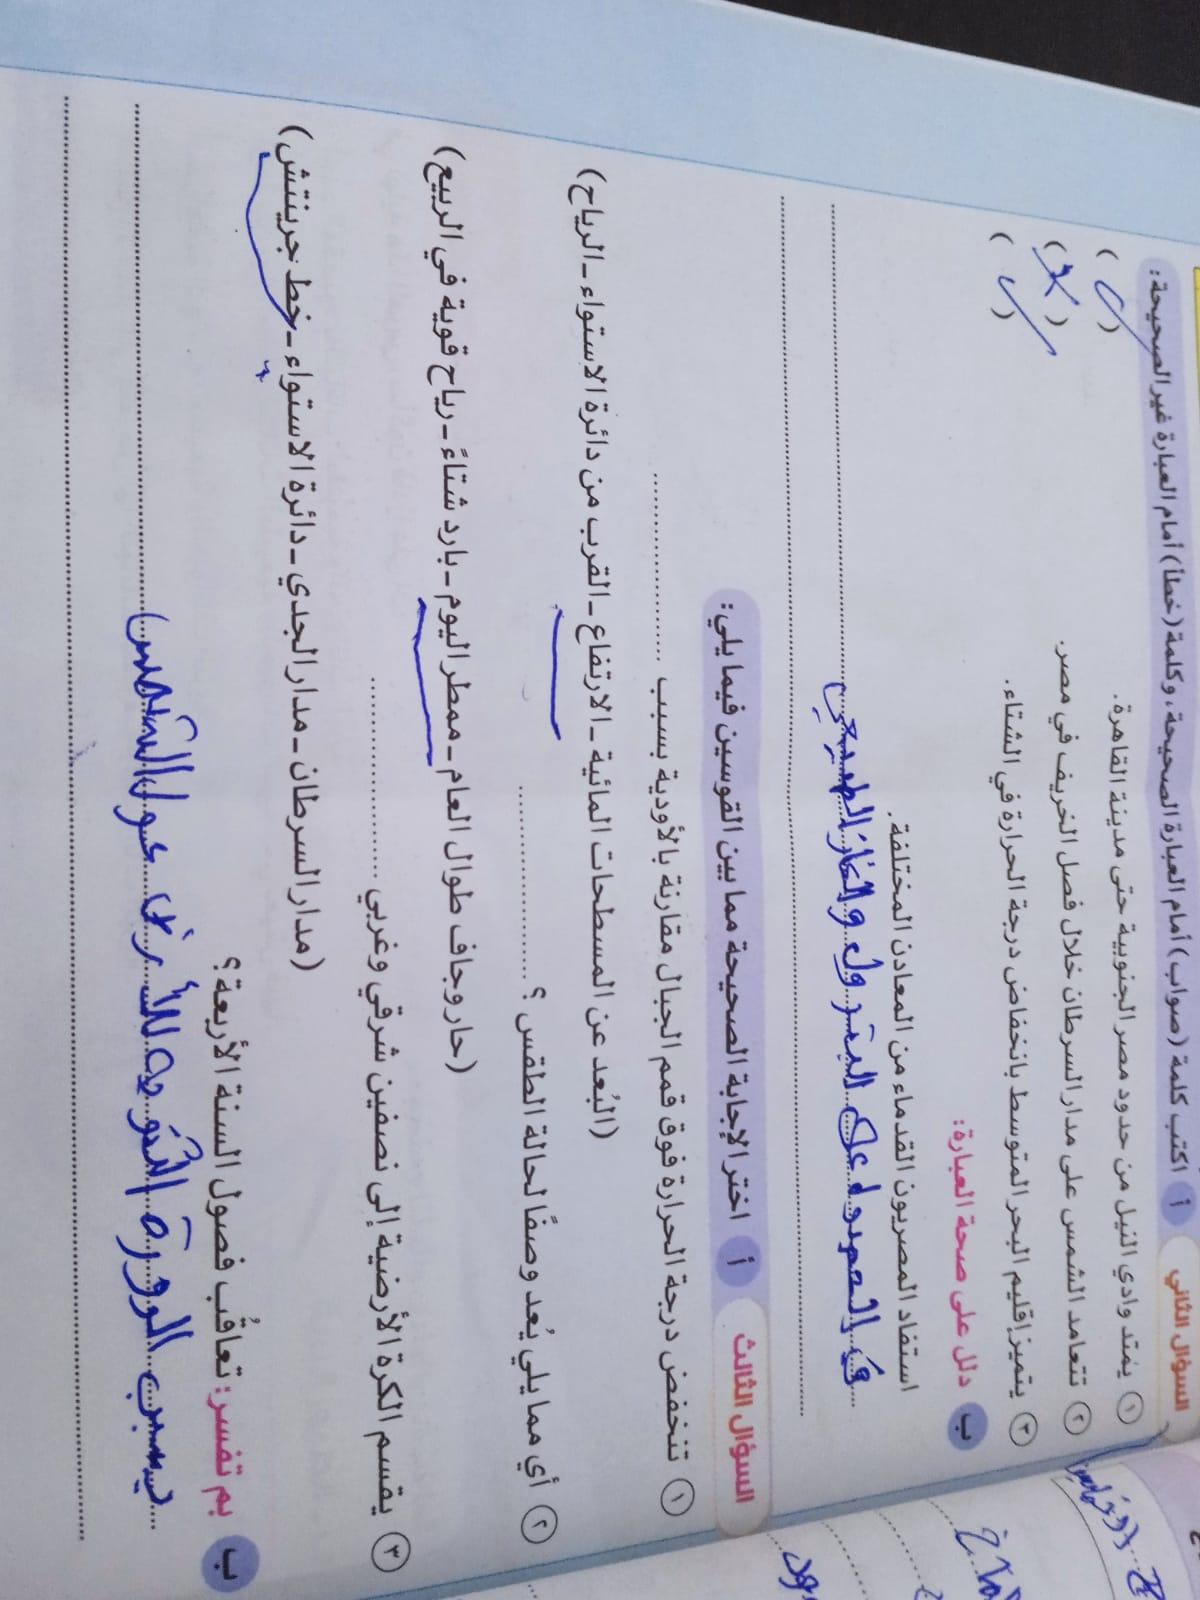 السؤال الثاني أ اكتب كلمة (صواب) أمام العبارة الصحيحة، وكلمة (خطأ) أمام العبارة غير الصحيحة:
١ يمتد وادي النيل من حدود مصر الجنوبية حتى مدينة القاهرة. ( ✓ )
٢ تتعامد الشمس على مدار السرطان خلال فصل الخريف في مصر. ( × )
٣ يتميز إقليم البحر المتوسط بانخفاض درجة الحرارة في الشتاء. ( ✓ )
ب دلل على صحة العبارة:
استفاد المصريون القدماء من المعادن المختلفة.
في الحصول على البترول والغاز الطبيعي
السؤال الثالث أ اختر الإجابة الصحيحة مما بين القوسين فيما يلي:
١ تنخفض درجة الحرارة فوق قمم الجبال مقارنة بالأودية بسبب ..................
(البُعد عن المسطحات المائية – الارتفاع – القرب من دائرة الاستواء – الرياح)
٢ أي مما يلي يُعد وصفًا لحالة الطقس ؟ ..................
(حار وجاف طوال العام – ممطر اليوم – بارد شتاءً – رياح قوية في الربيع)
٣ يقسم الكرة الأرضية إلى نصفين شرقي وغربي ..................
(مدار السرطان – مدار الجدي – دائرة الاستواء – خط جرينتش)
ب بم تفسر: تعاقُب فصول السنة الأربعة؟
بسبب الدورة السنوية للأرض حول الشمس